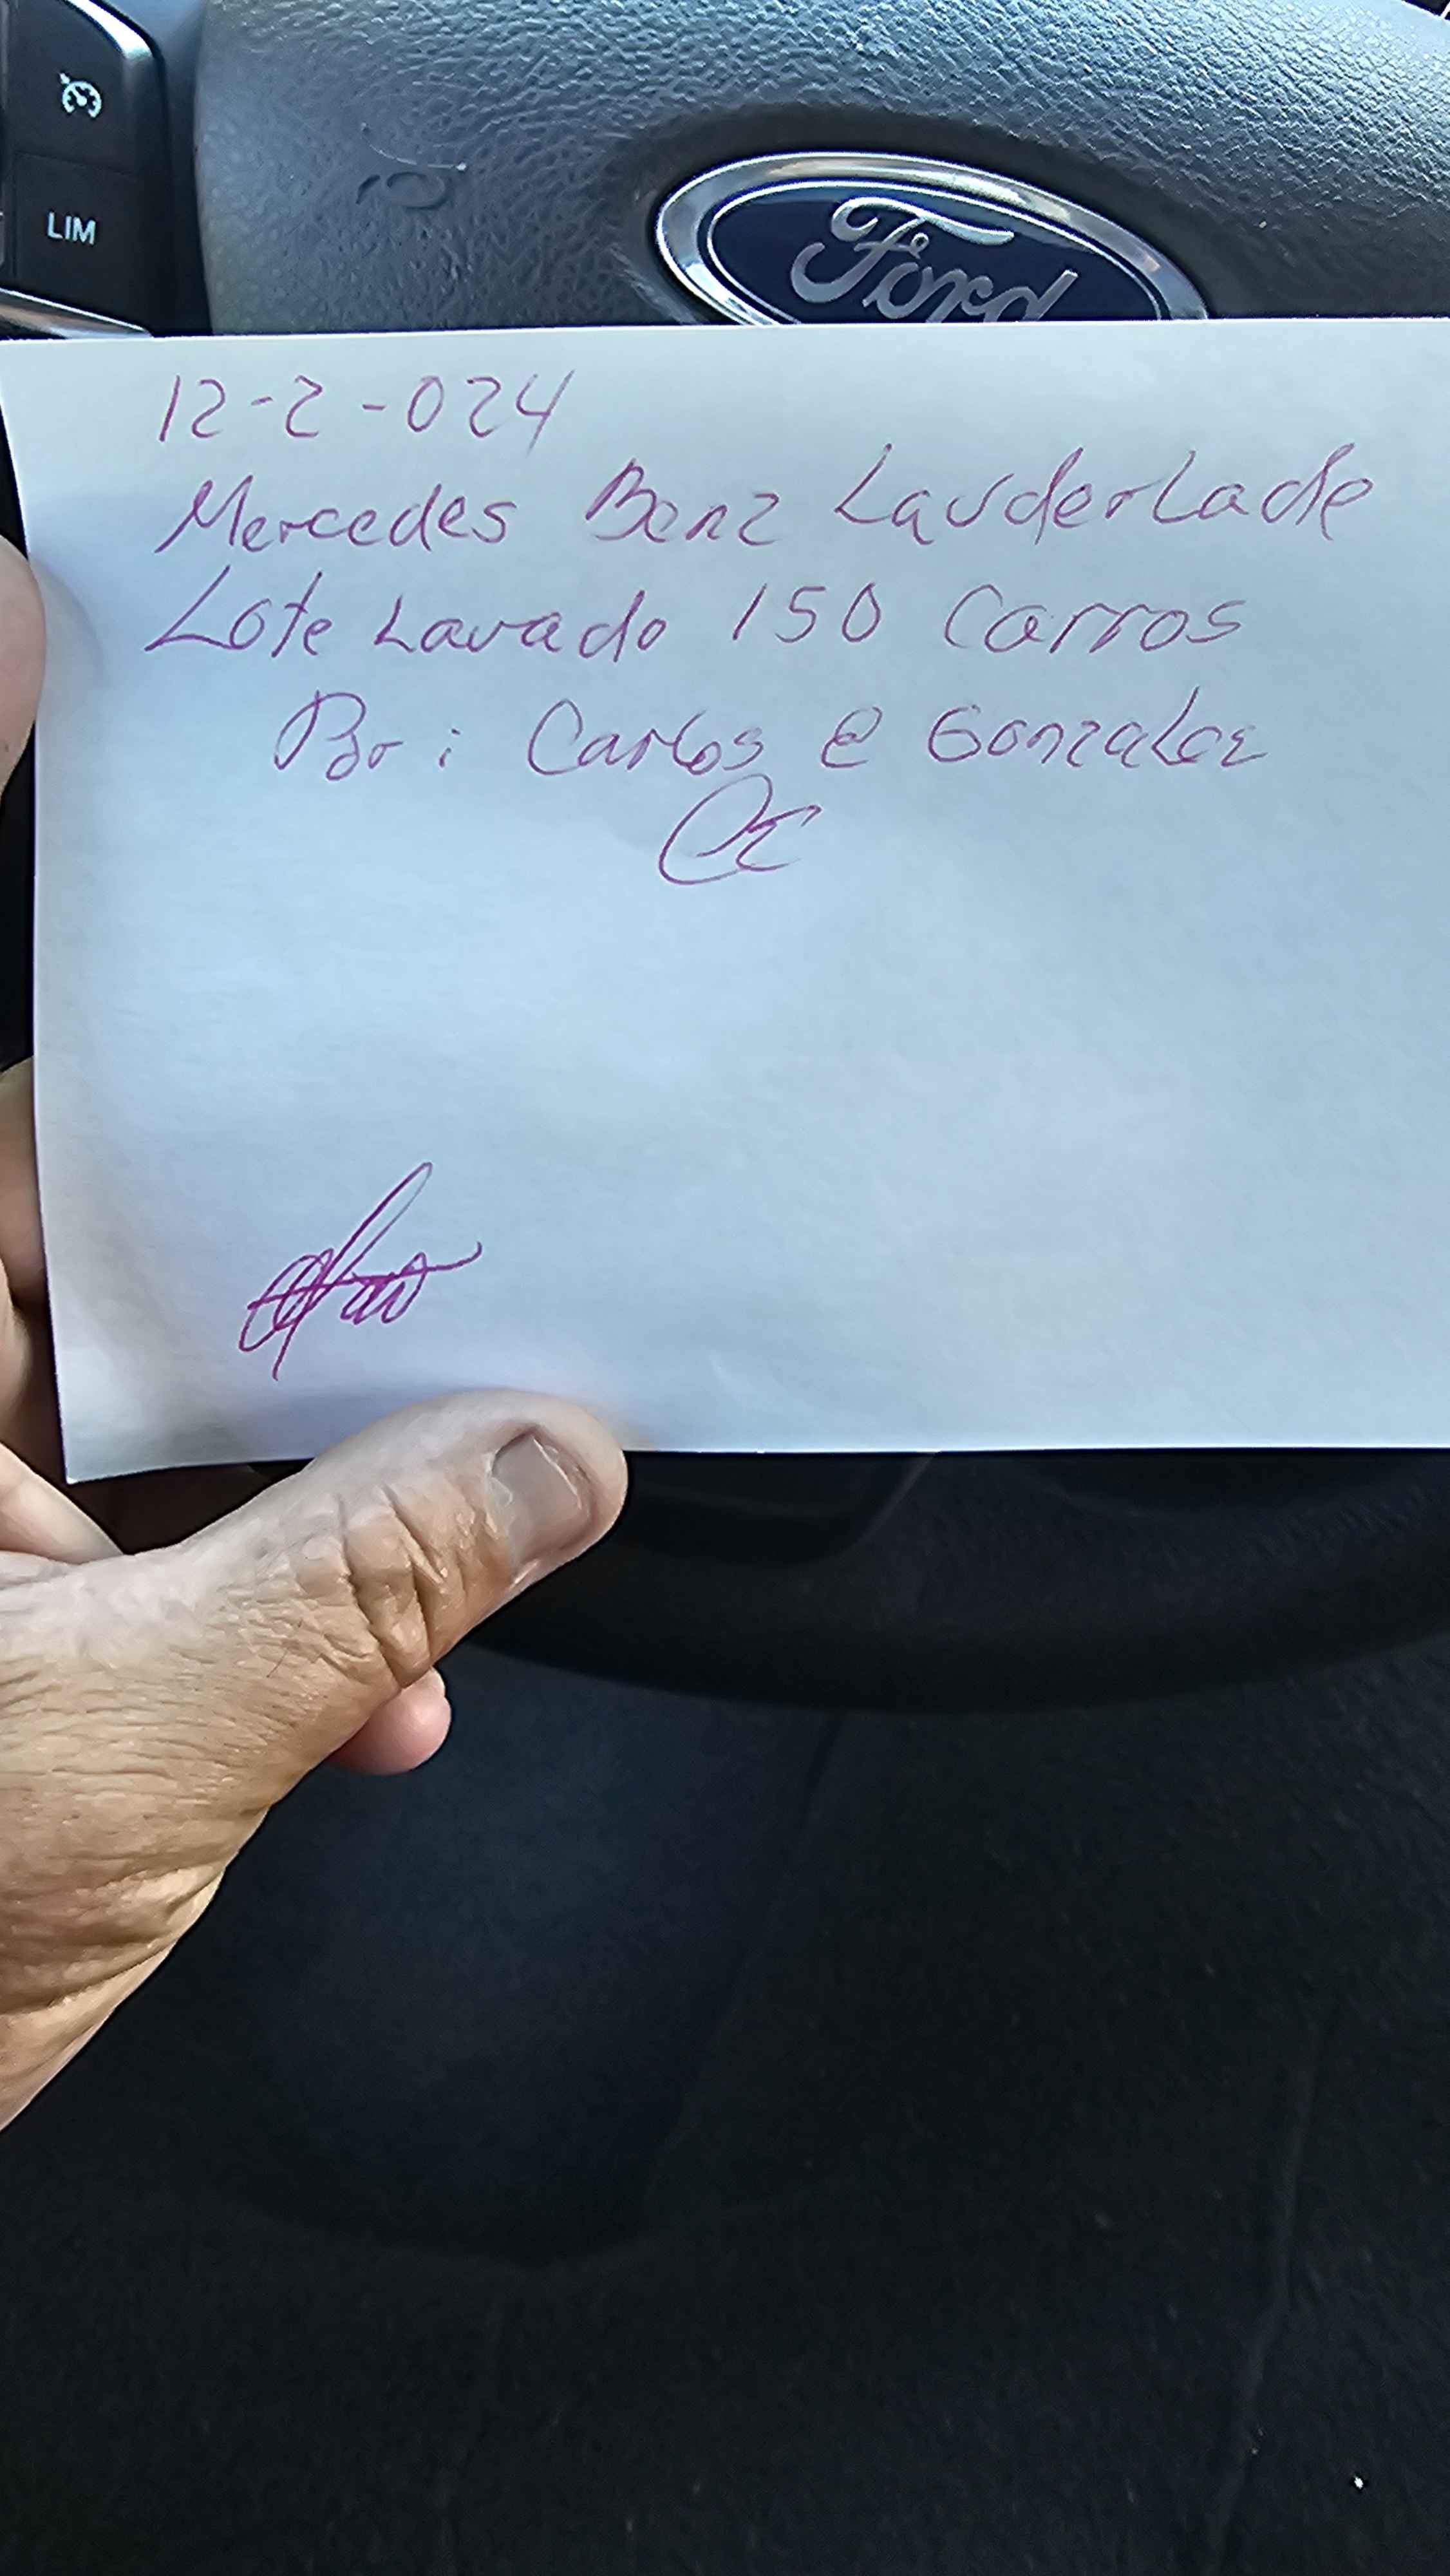 LIM
Ford
12-2-024
Mercedes Benz Lauderlade
Lote Lavado 150 Carros
Por: Carlos E Gonzalez